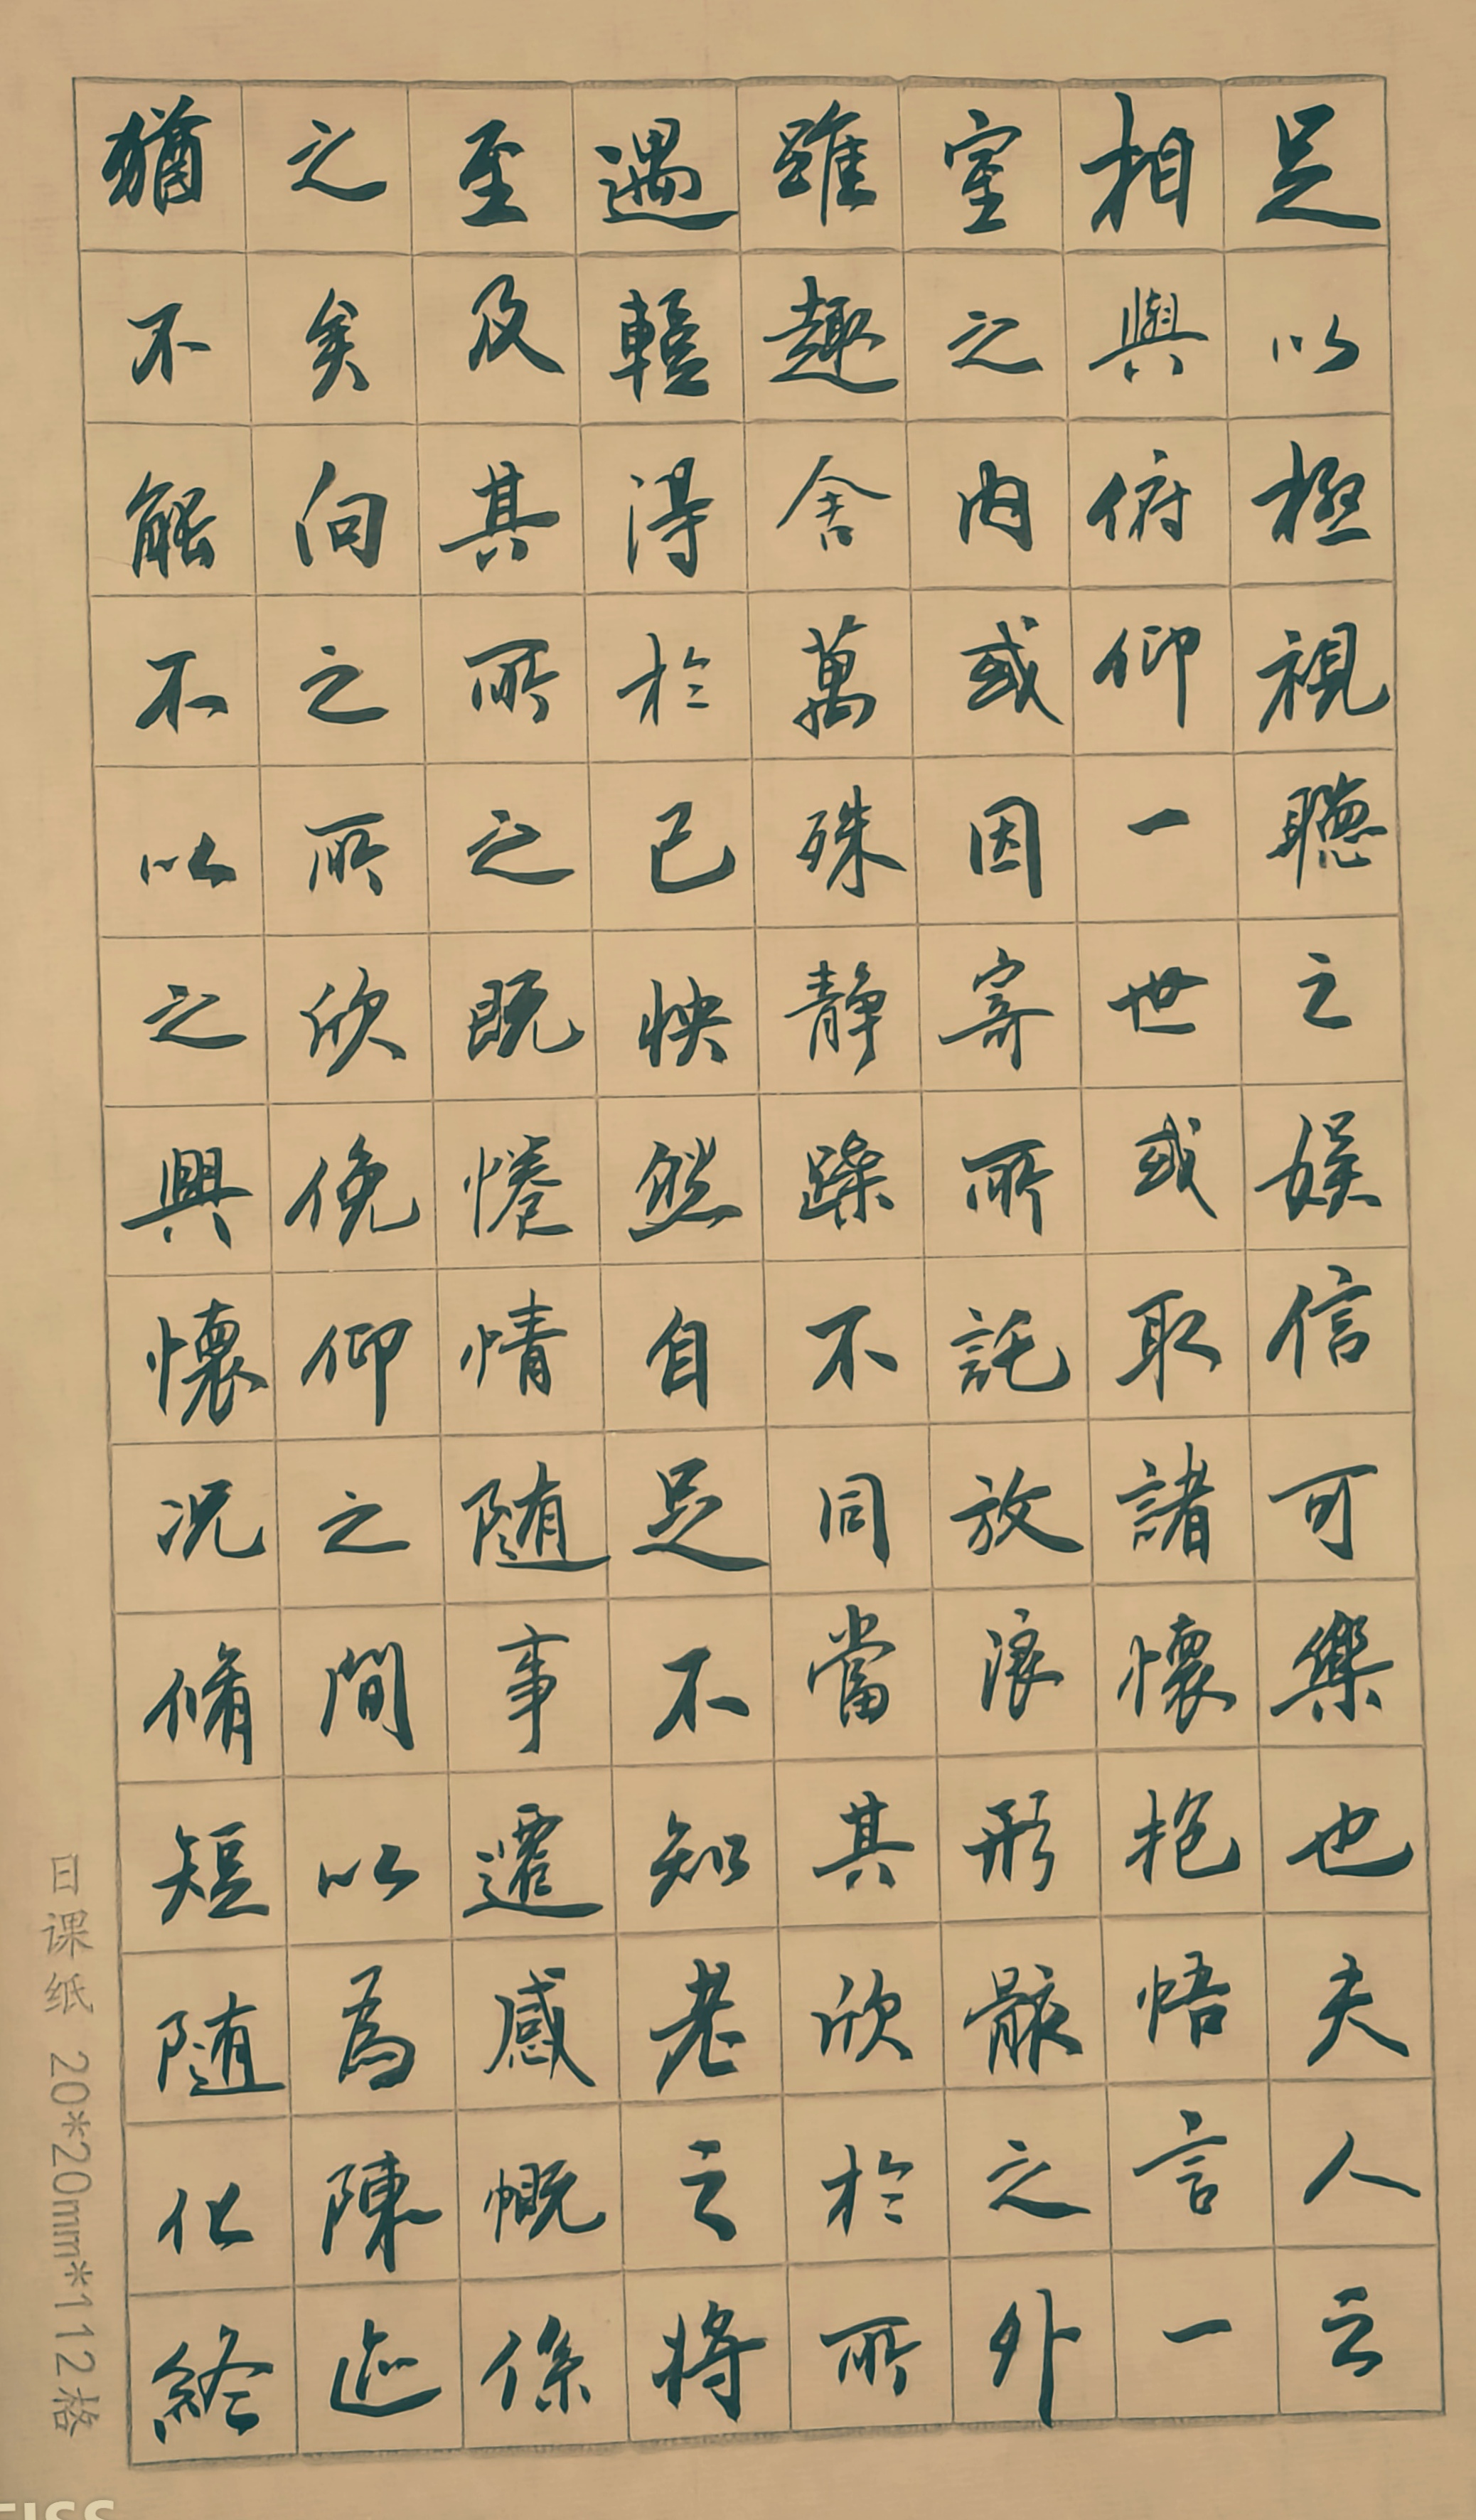 足以極視聽之娛信可樂也夫人之
相與俯仰一世或取諸懷抱悟言一
室之內或因寄所託放浪形骸之外
雖趣舍萬殊静躁不同當其欣於所
遇暫得於己怏然自足不知老之將
至及其所之既惓情随事遷感慨係
之矣向之所欣俛仰之間以為陳迹
猶不能不以之興懷况脩短随化終
日课纸 20*20mm*112格